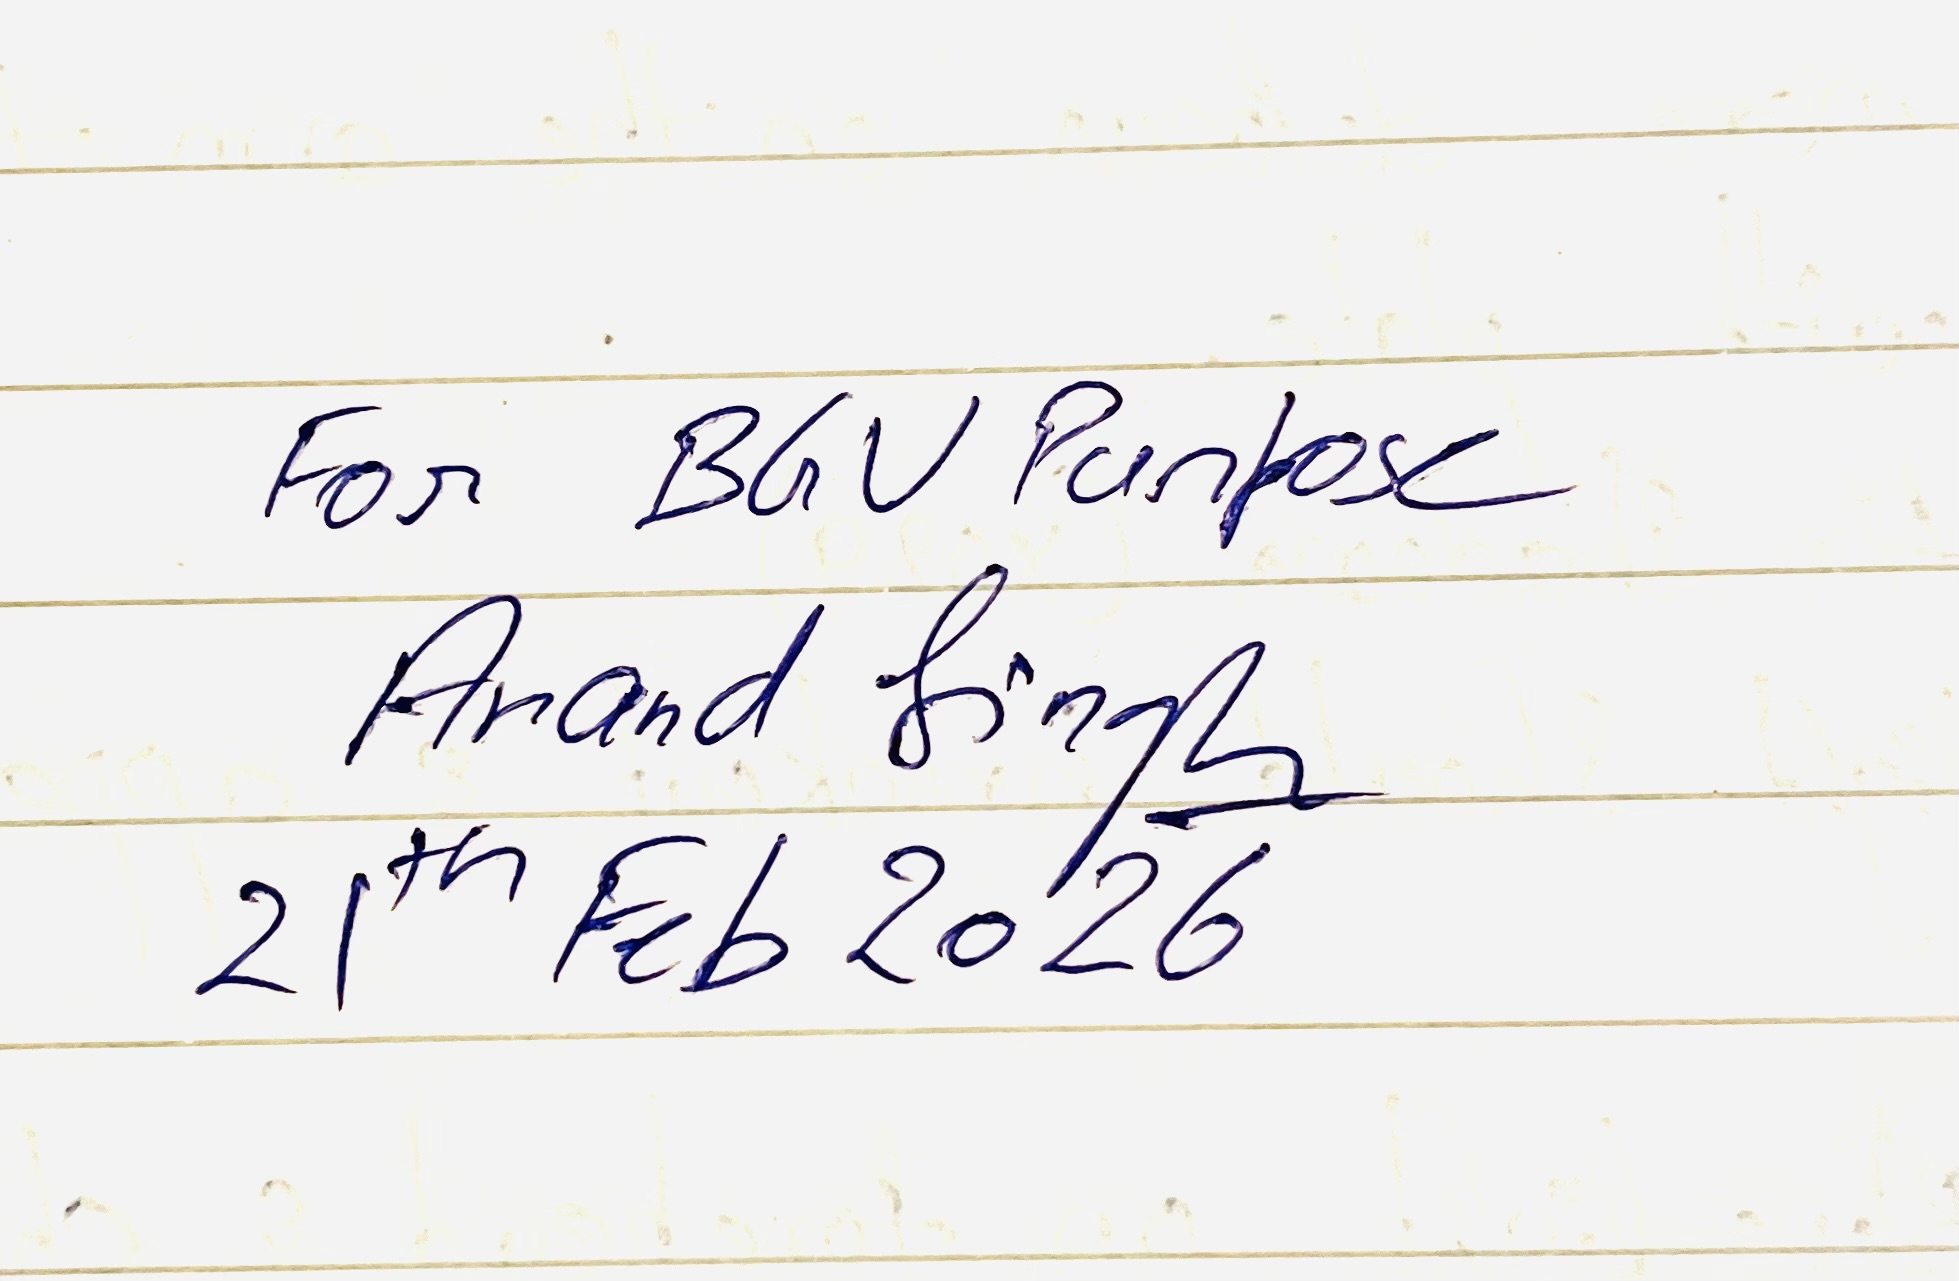 For BGV Purpose
Anand Singh
21th Feb 2026